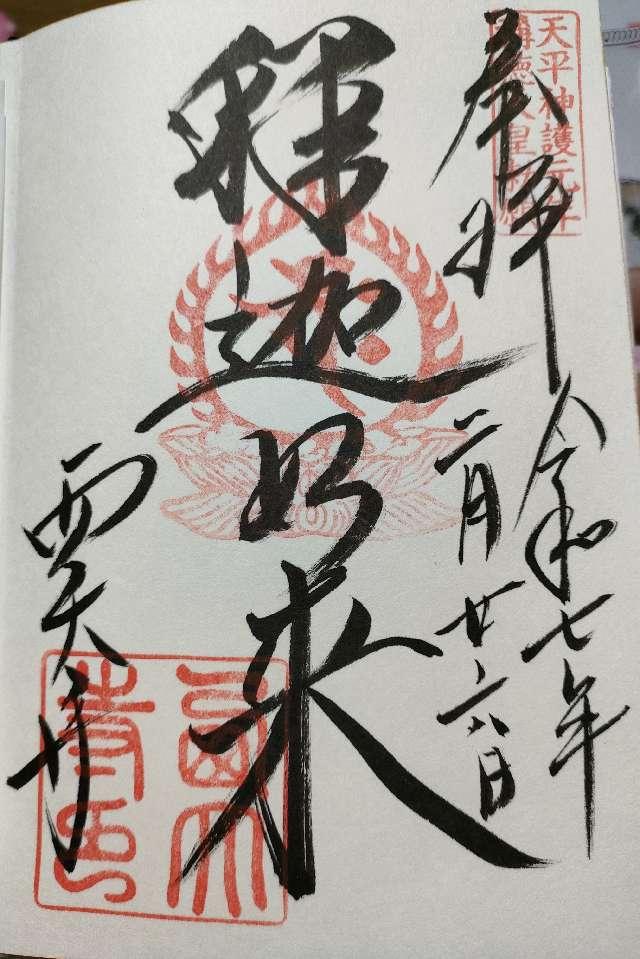 天平神護元年
稱德天皇勅願
奉拝
令和七年
二月廿六日
釋迦如来
西大寺
西大寺印